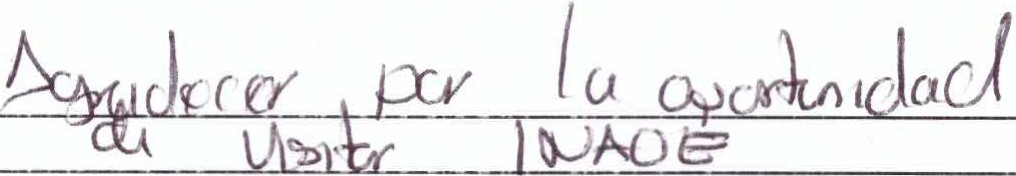 Agradecer por la oportunidad
de visitar INAOE